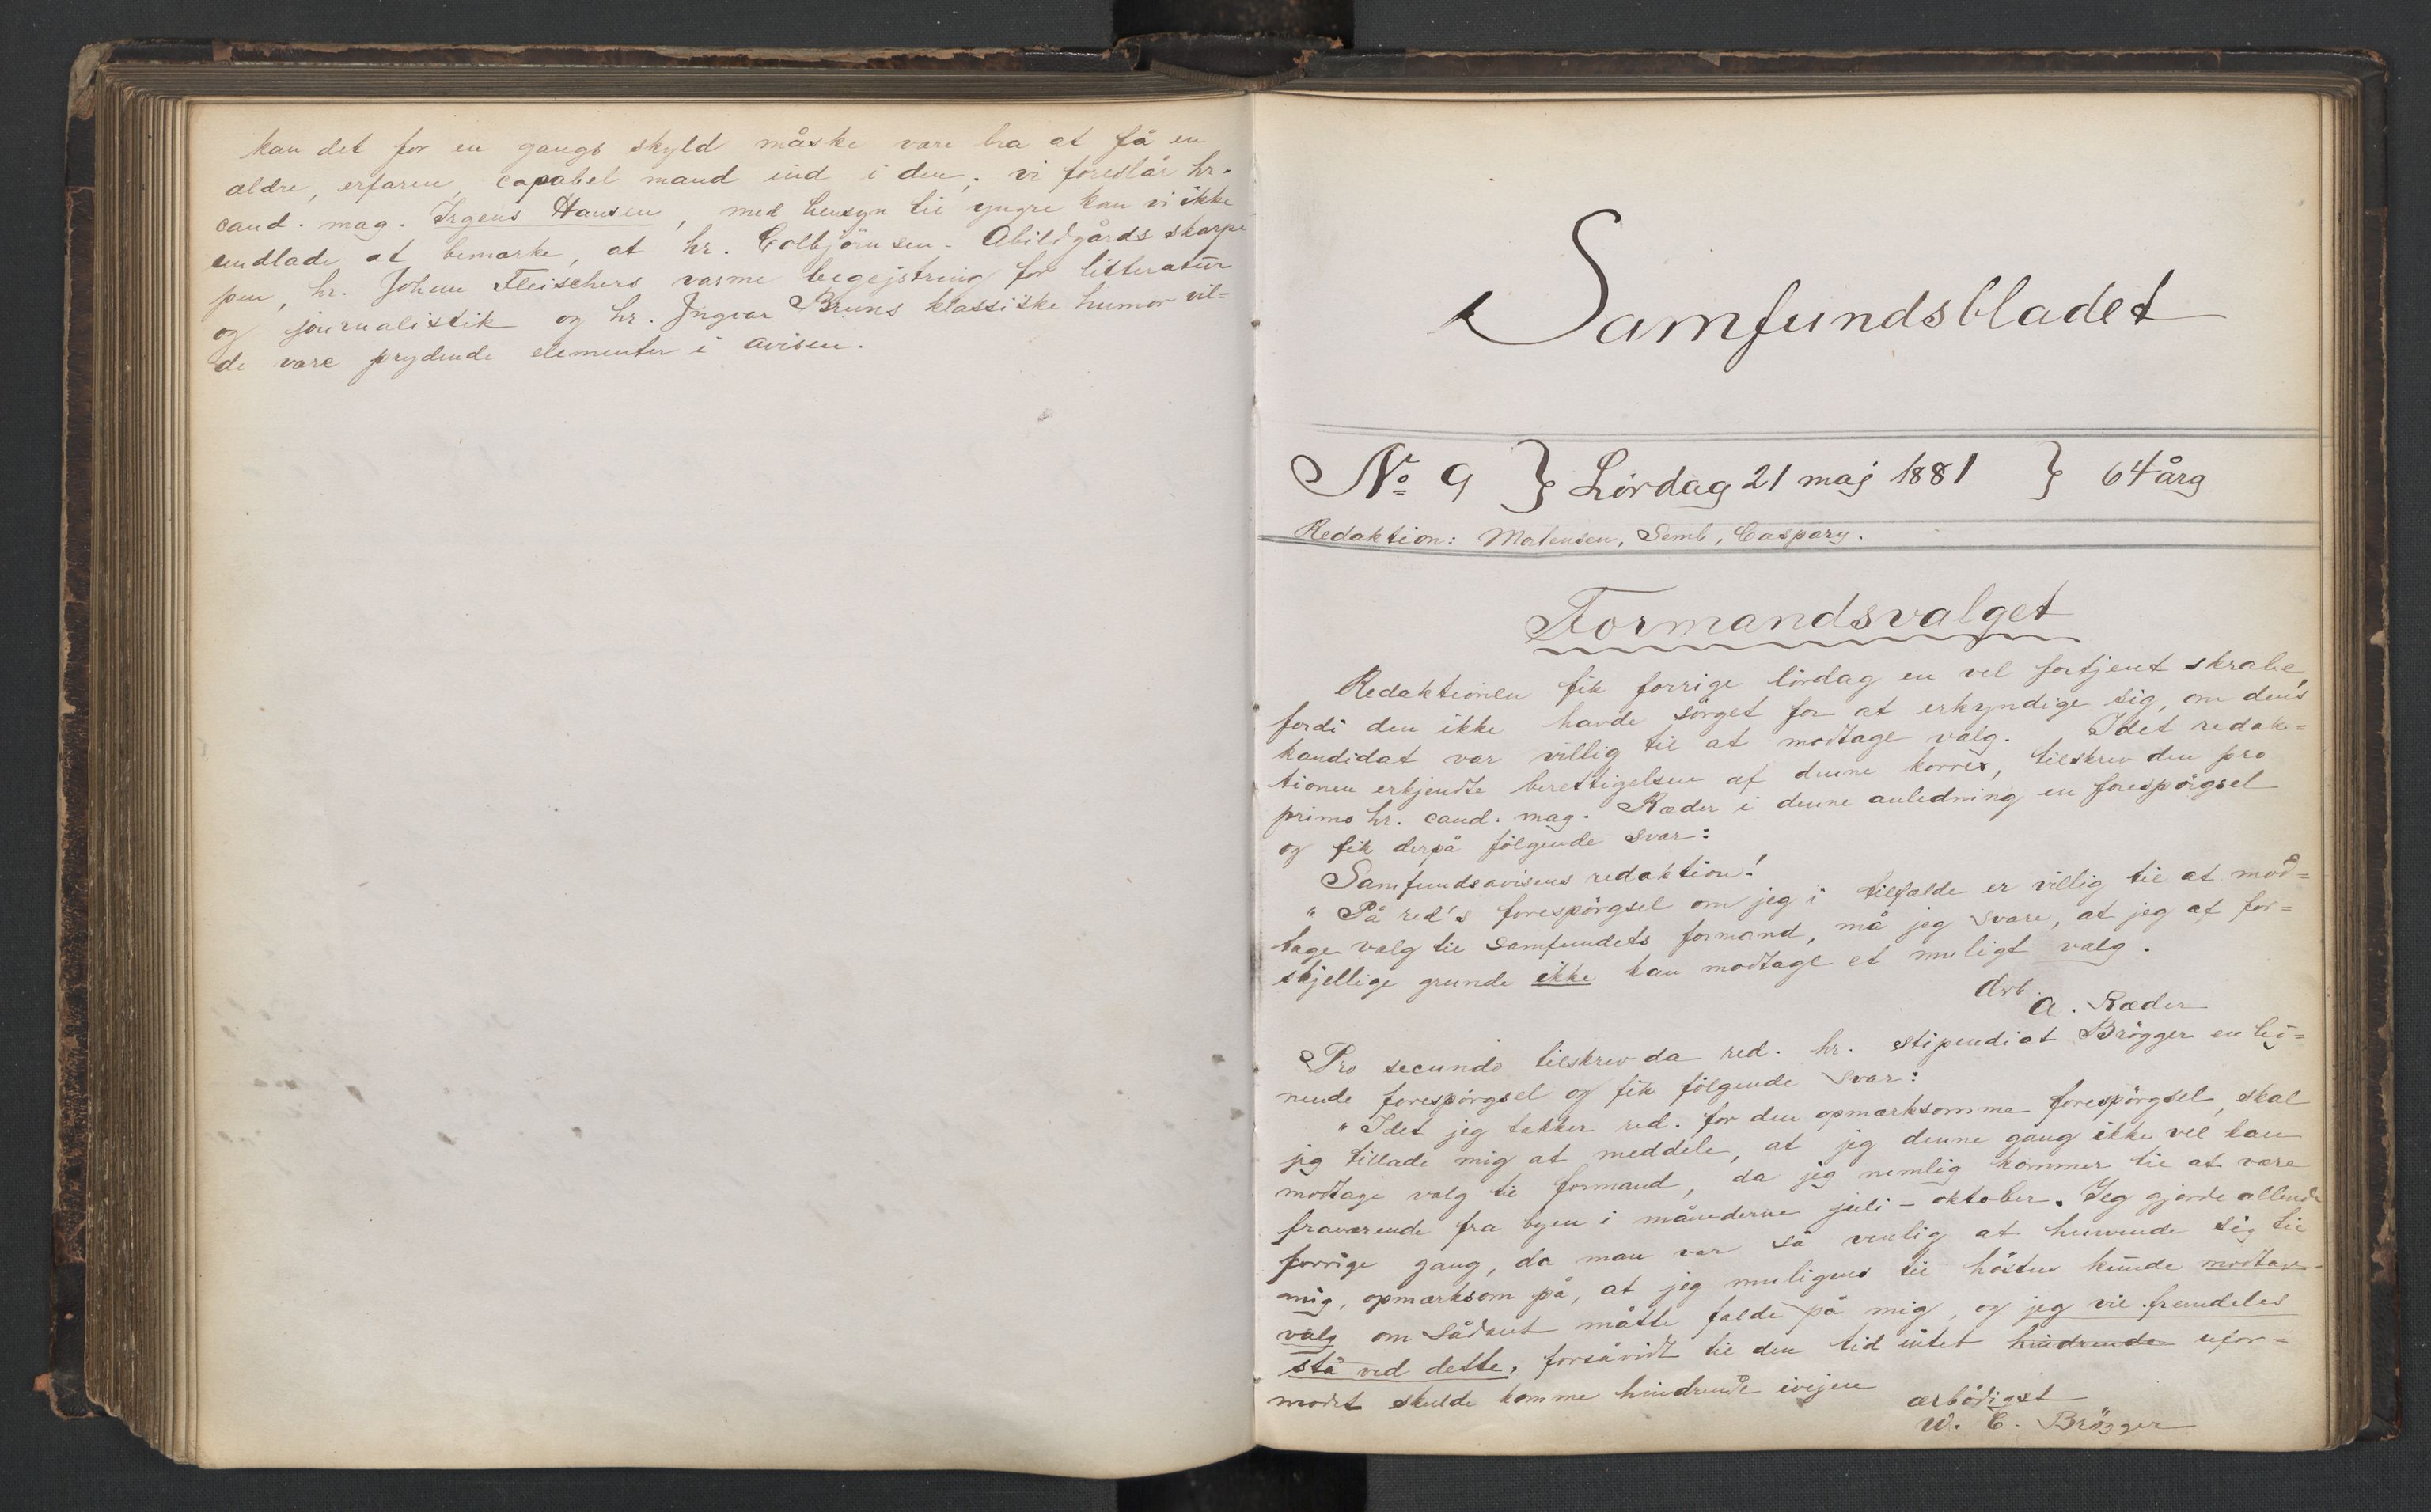 kan det for en gangs skyld måske være bra at få en
ældre, erfaren, capabel mand ind i den; vi foreslår hr.
cand. mag. Irgens Hansen, med hensyn til yngre kan vi ikke
undlade at bemærke, at hr. Colbjörnsen-Abildgårds skarpe
pen, hr. Johan Fleischers varme begejstring for litteratur
og journalistik og hr. Ingvar Bruns klassiske humor vil=
de være prydende elementer i avisen.
Samfundsbladet
No 9 } Lördag 21 maj 1881 } 64 årg
Redaktion: Mortensen, Semb, Caspary.
Formandsvalget
Redaktionen fik forrige lördag en vel fortjent skrabe,
fordi den ikke havde sörget for at erkyndige sig, om dens
kandidat var villig til at modtage valg. Idet redak=
tionen erkjendte berettigelsen af denne korrex, tilskrev den pro
primo hr. cand. mag. Ræder i denne anledning en forespörgsel
og fik derpå fölgende svar:
Samfundsavisens redaktion!
"På red's forespörgsel om jeg i tilfælde er villig til at mod=
tage valg til Samfundets formand, må jeg svare, at jeg af for=
skjellige grunde ikke kan modtage et muligt valg.
Ærb.
A. Ræder
Pro secundo tilskrev da red. hr. stipendiat Brögger en lig=
nende forespörgsel og fik fölgende svar:
"Idet jeg takker red. for den opmærksomme forespörgsel, skal
jeg tillade mig at meddele, at jeg denne gang ikke vel kan
modtage valg til formand, da jeg nemlig kommer til at være
fraværende fra byen i månederne juli - oktober. Jeg gjorde allende
forrige gang, da man var så venlig at henvende sig til
mig, opmærksom på, at jeg muligens til hösten kunde modtage
valg om sådant måtte falde på mig, og jeg vil fremdeles
stå ved dette, forsåvidt til den tid intet hindrende ufor=
modet skulde komme hindrende ivejen
ærbödigst
W. C. Brögger